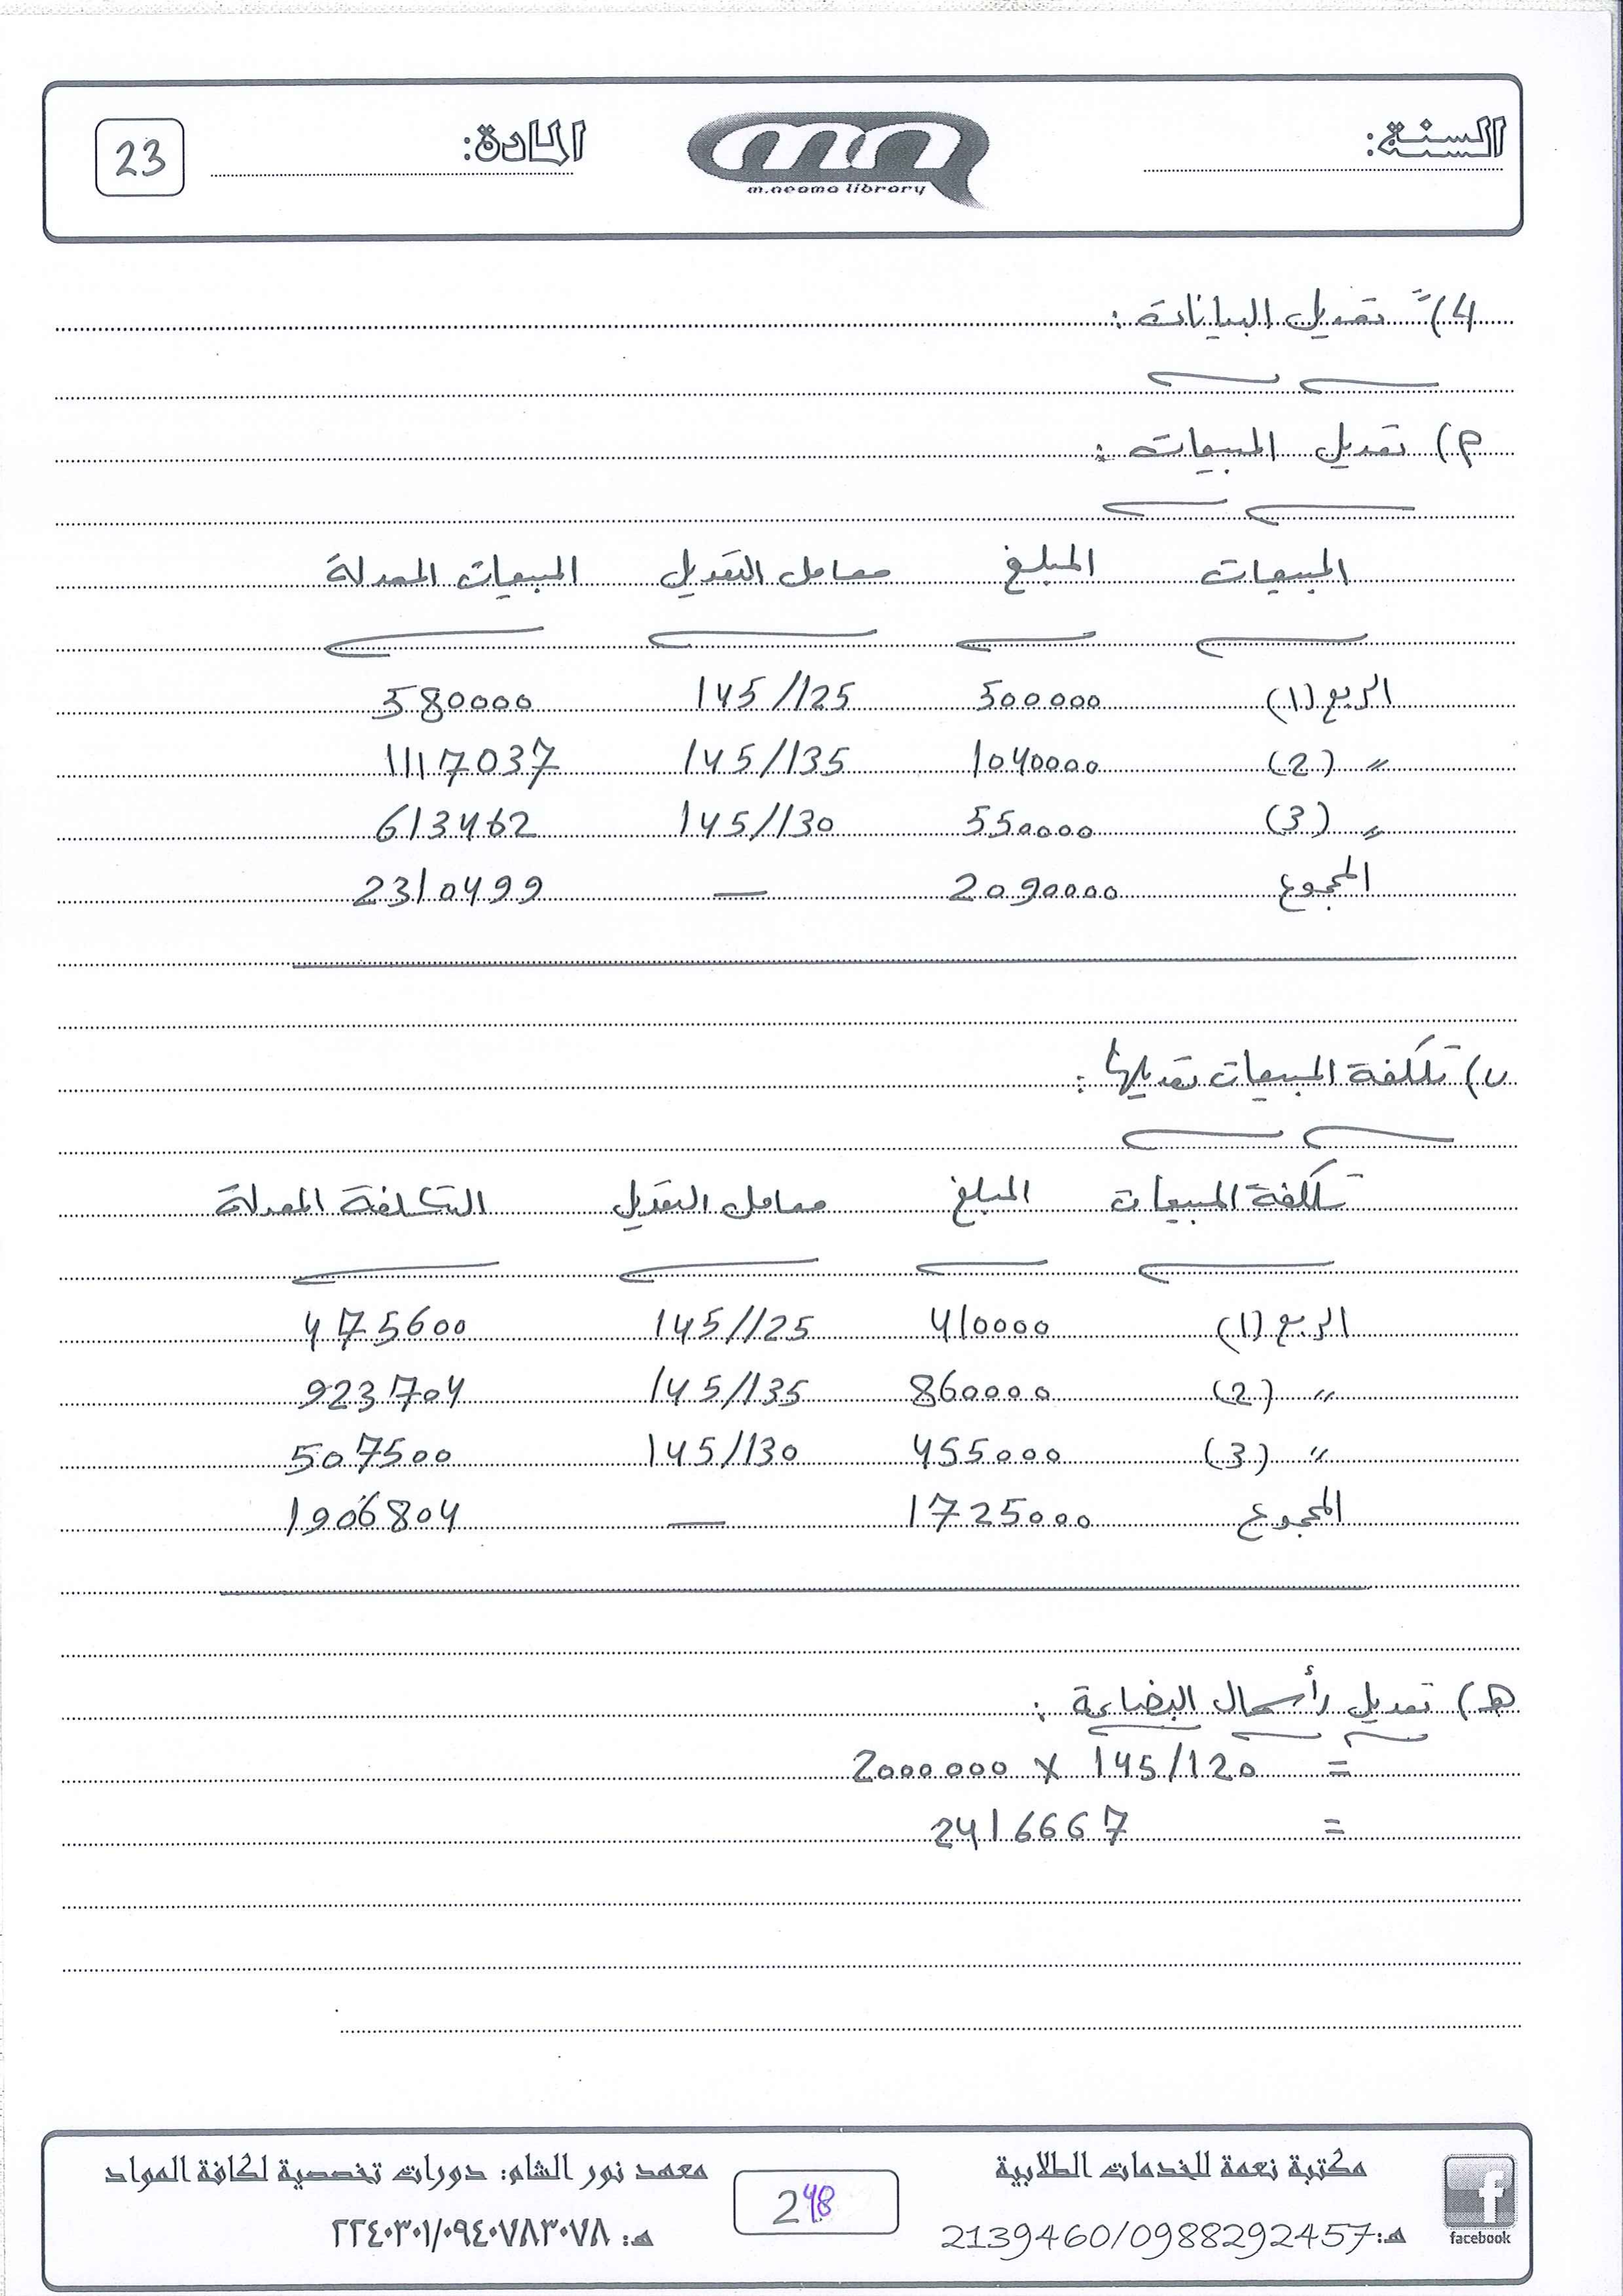 السنة:
المادة:
23
m.neama library
4) تعديل البيانات :
م) تعديل المبيعات :
المبيعات المبلغ معامل التعديل المبيعات المعدلة
الربع (1) 500000 145/125 580000
〃 (2) 1040000 145/135 1117037
〃 (3) 550000 145/130 613462
المجموع 2090000 — 2310499
ب) تكلفة المبيعات تعديلها :
تكلفة المبيعات المبلغ معامل التعديل التكلفة المعدلة
الربع (1) 410000 145/125 475600
〃 (2) 860000 145/135 923704
〃 (3) 455000 145/130 507500
المجموع 1725000 — 1906804
هـ) تعديل رأسمال البضاعة :
= 2000000 × 145/120
= 2416667
مكتبة نعمة للخدمات الطلابية
هـ: 2139460/0988292457
facebook
248
معهد نور الشام: دورات تخصصية لكافة المواد
هـ: ٢٢٤٠٣٠١/٠٩٤٠٧٨٣٠٧٨